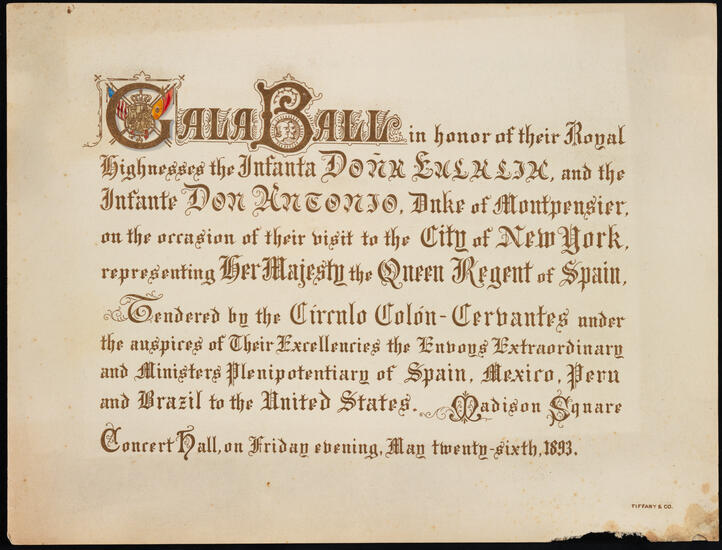 Gala Ball in honor of their Royal
Highnesses the Infanta Doña Eulalia, and the
Infante Don Antonio, Duke of Montpensier,
on the occasion of their visit to the City of New York,
representing Her Majesty the Queen Regent of Spain,
Tendered by the Círculo Colón-Cervantes under
the auspices of Their Excellencies the Envoys Extraordinary
and Ministers Plenipotentiary of Spain, Mexico, Peru
and Brazil to the United States. Madison Square
Concert Hall, on Friday evening, May twenty-sixth, 1893.
TIFFANY & CO.